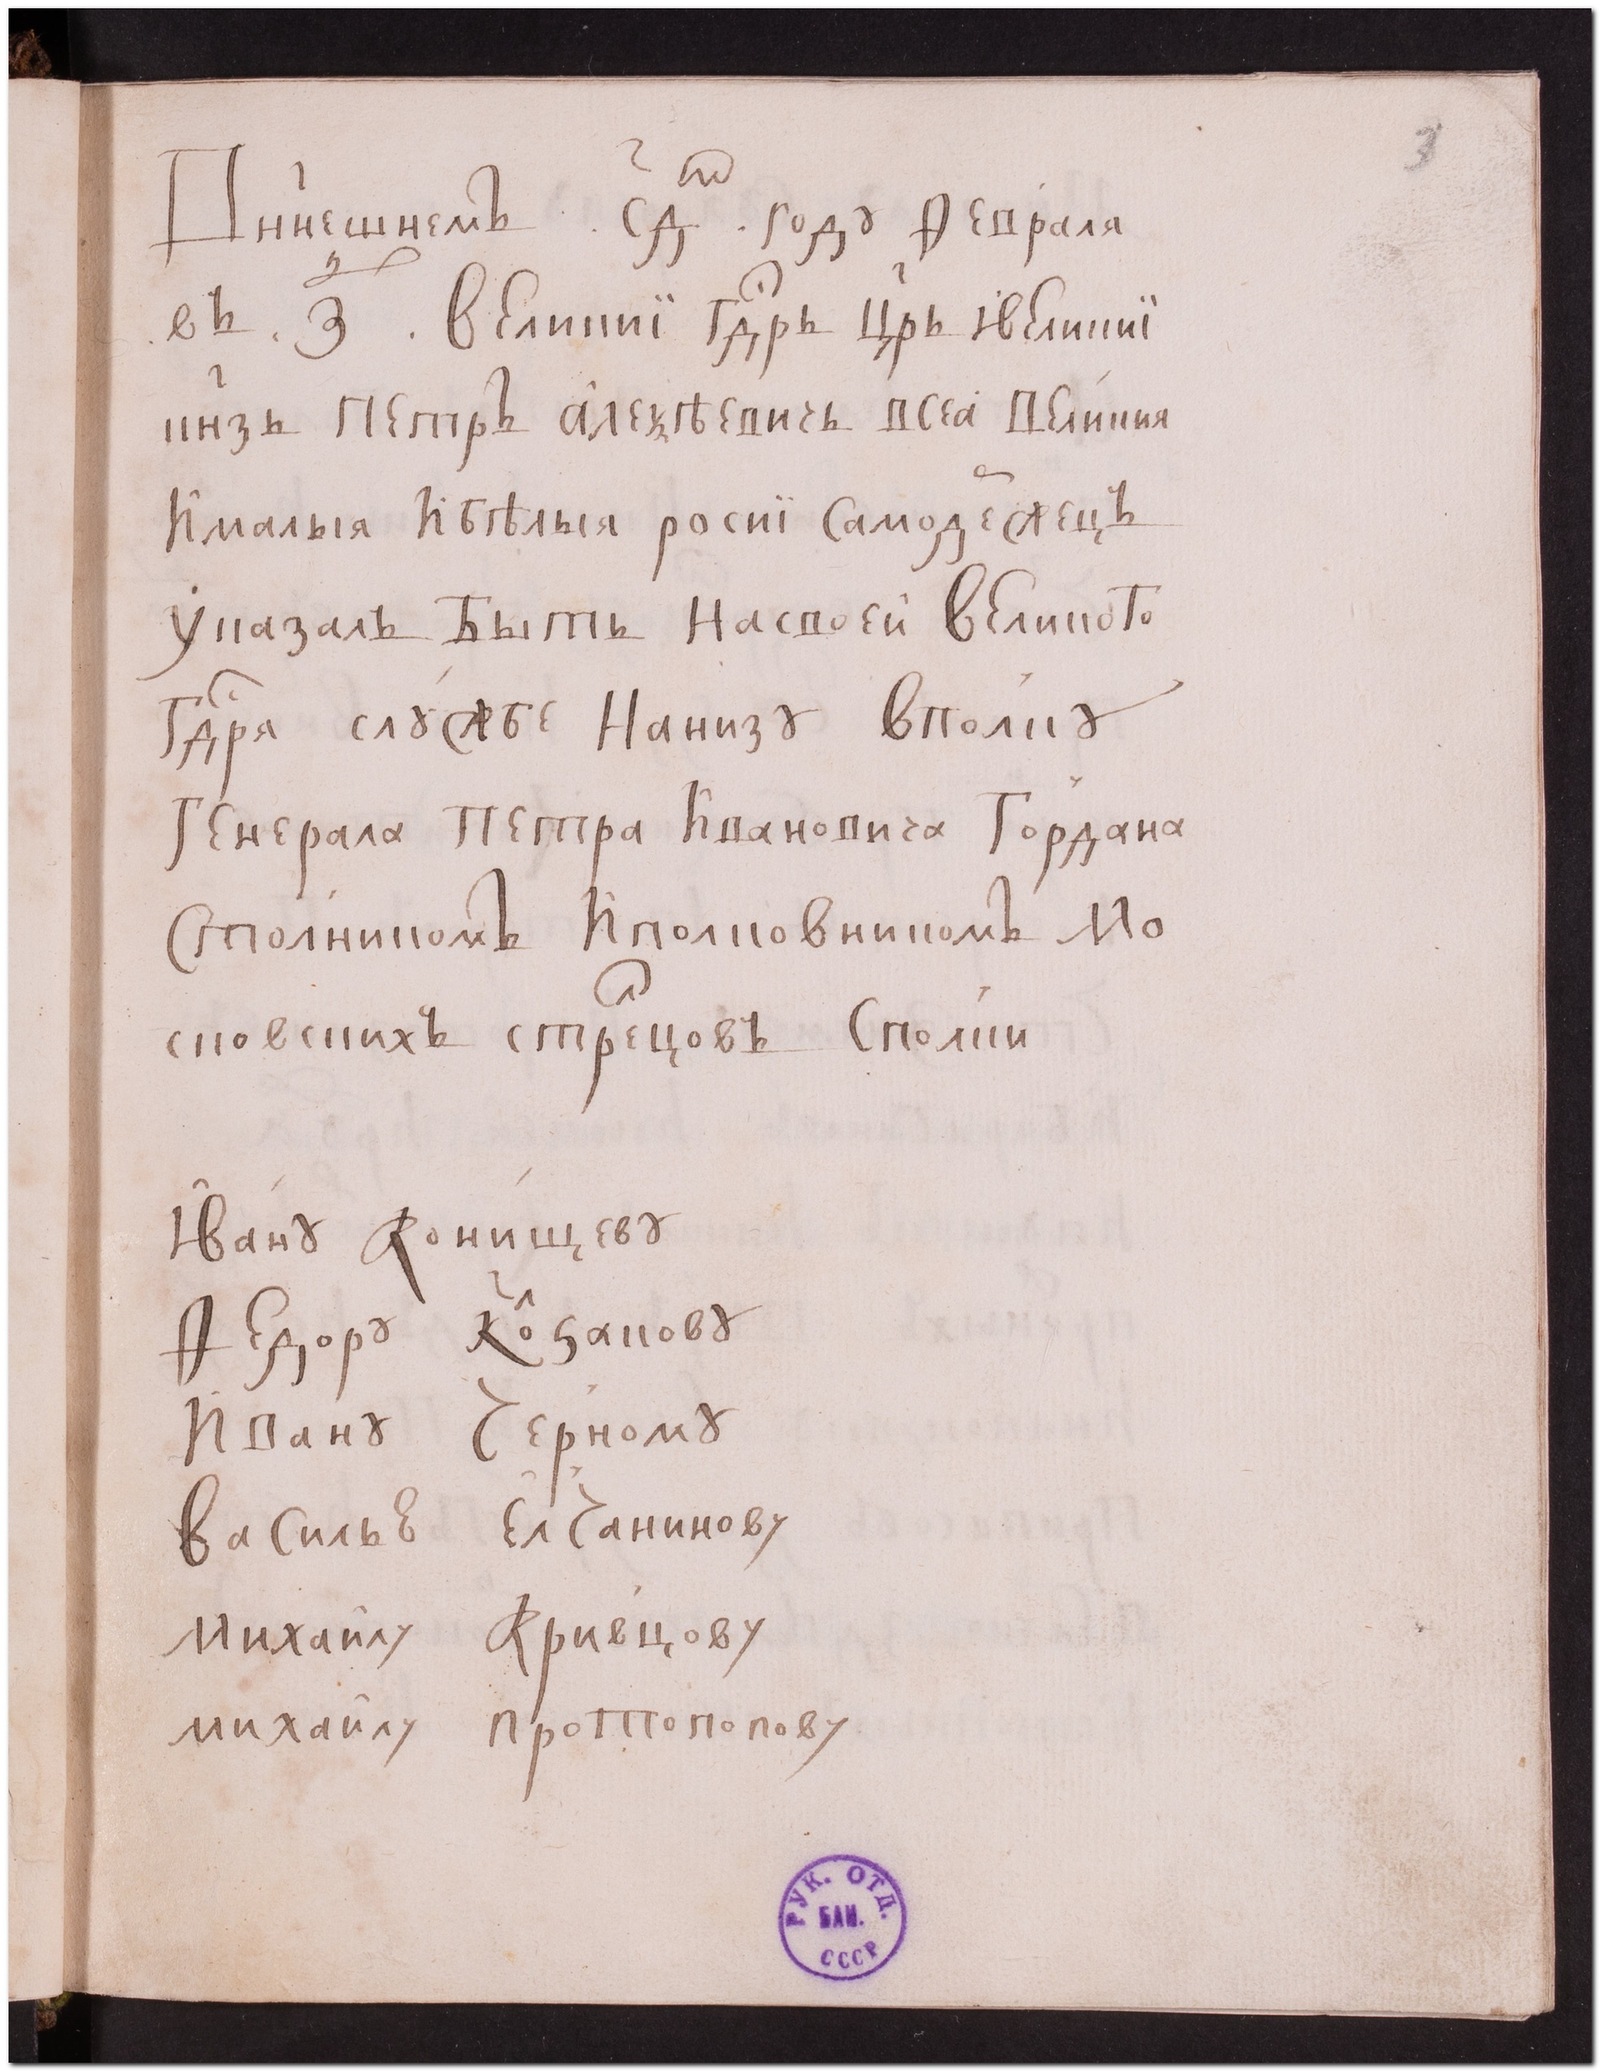 3
Внн҃ешнемъ . с҃д ᵗᵒ . годꙋ Ѳевраля
въ . з҃ . великиї гдⷭ҇рь цр҃ь ивеликиї
кн҃зь Петръ алеѯѣевичь всеа Великия
Ималыя Ибѣлыя росиї самодеⷬжецъ
Указалъ Быть насвоей великого
гдⷭ҇ря слꙋжбе Нанизꙋ вполкꙋ
Генерала Петра Ивановича Гордана
Столникомъ Иполковникомъ Мо
сковскихъ стреⷧцовъ Сполки
Иванꙋ Конищевꙋ
Ѳедорꙋ Коⷧзаковꙋ
Иванꙋ Черномꙋ
Василью Елчанинову
Михайлу Кривцову
михайлу протопопову
РУК. ОТД.
БАН.
СССР